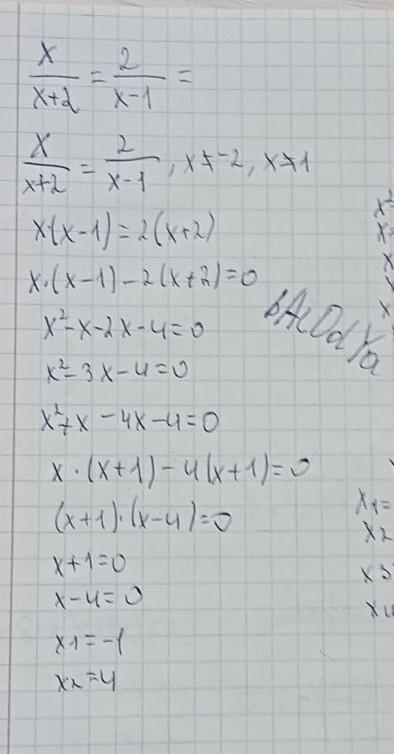 x/(x+2) = 2/(x-1) =
x/(x+2) = 2/(x-1), x≠-2, x≠1
x·(x-1)=2(x+2)
x·(x-1)-2(x+2)=0
x²-x-2x-4=0
x²-3x-4=0
x²+x-4x-4=0
x·(x+1)-4(x+1)=0
(x+1)·(x-4)=0
x+1=0
x-4=0
x1=-1
x2=4
x²
x=
x
x
x1=
x2
x3